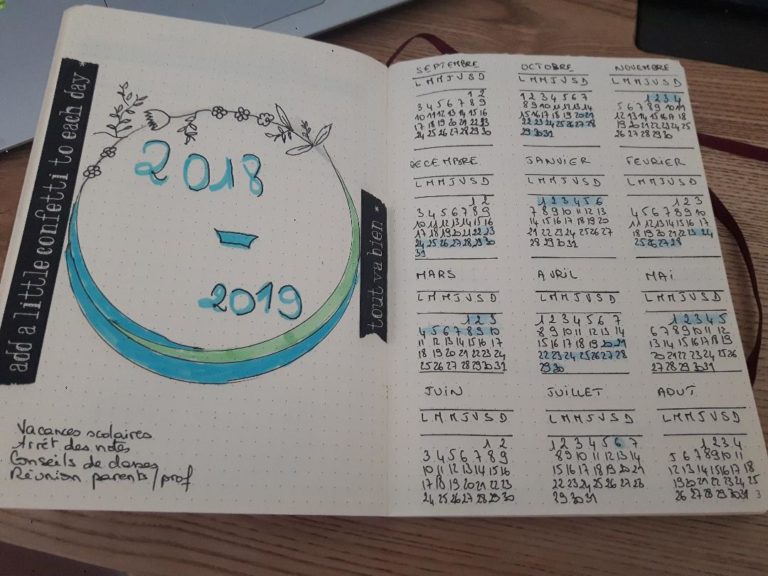 add a little confetti to each day
2018
-
2019
tout va bien
Vacances scolaires
Arrêt des notes
Conseils de classes
Réunion parents/prof
SEPTEMBRE
L M M J V S D
1 2
3 4 5 6 7 8 9
10 11 12 13 14 15 16
17 18 19 20 21 22 23
24 25 26 27 28 29 30
OCTOBRE
L M M J V S D
1 2 3 4 5 6 7
8 9 10 11 12 13 14
15 16 17 18 19 20 21
22 23 24 25 26 27 28
29 30 31
NOVEMBRE
L M M J V S D
1 2 3 4
5 6 7 8 9 10 11
12 13 14 15 16 17 18
19 20 21 22 23 24 25
26 27 28 29 30
DECEMBRE
L M M J V S D
1 2
3 4 5 6 7 8 9
10 11 12 13 14 15 16
17 18 19 20 21 22 23
24 25 26 27 28 29 30
31
JANVIER
L M M J V S D
1 2 3 4 5 6
7 8 9 10 11 12 13
14 15 16 17 18 19 20
21 22 23 24 25 26 27
28 29 30 31
FEVRIER
L M M J V S D
1 2 3
4 5 6 7 8 9 10
11 12 13 14 15 16 17
18 19 20 21 22 23 24
25 26 27 28
MARS
L M M J V S D
1 2 3
4 5 6 7 8 9 10
11 12 13 14 15 16 17
18 19 20 21 22 23 24
25 26 27 28 29 30 31
AVRIL
L M M J V S D
1 2 3 4 5 6 7
8 9 10 11 12 13 14
15 16 17 18 19 20 21
22 23 24 25 26 27 28
29 30
MAI
L M M J V S D
1 2 3 4 5
6 7 8 9 10 11 12
13 14 15 16 17 18 19
20 21 22 23 24 25 26
27 28 29 30 31
JUIN
L M M J V S D
1 2
3 4 5 6 7 8 9
10 11 12 13 14 15 16
17 18 19 20 21 22 23
24 25 26 27 28 29 30
JUILLET
L M M J V S D
1 2 3 4 5 6 7
8 9 10 11 12 13 14
15 16 17 18 19 20 21
22 23 24 25 26 27 28
29 30 31
AOUT
L M M J V S D
1 2 3 4
5 6 7 8 9 10 11
12 13 14 15 16 17 18
19 20 21 22 23 24 25
26 27 28 29 30 31
3